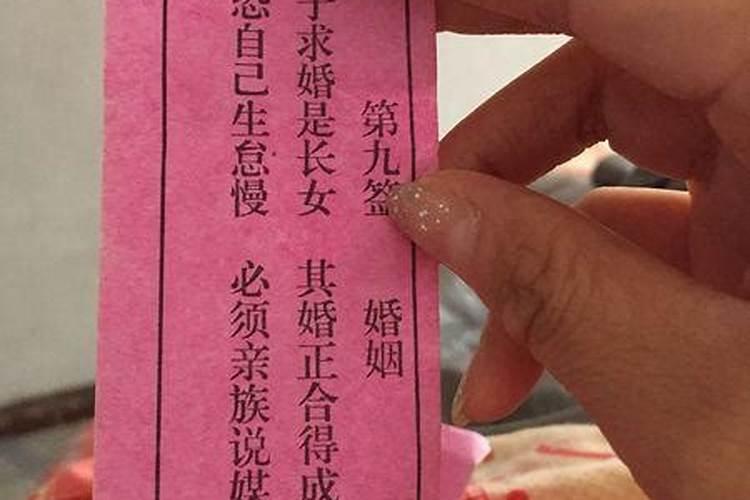 第九签 婚姻
求婚是长女 其婚正合得成
恐自己生怠慢 必须亲族说媒